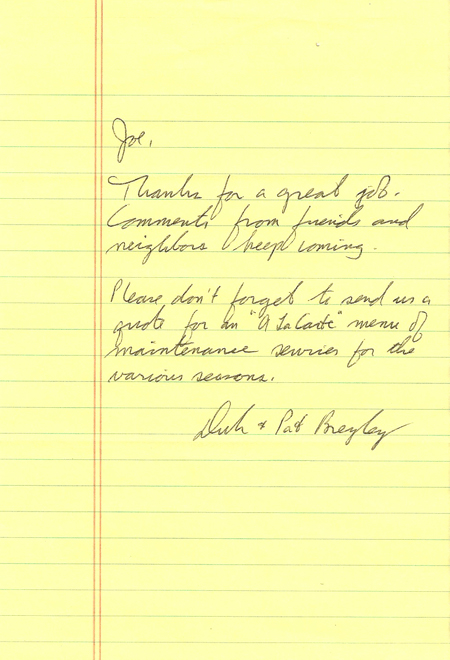 Joe,
Thanks for a great job.
Comments from friends and
neighbors keep coming.
Please don't forget to send us a
quote for an "A La Carte" menu of
maintenance services for the
various seasons.
& Pat